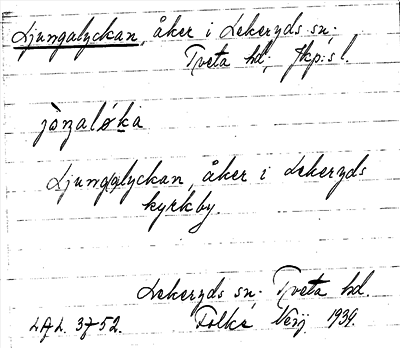 Ljungalyckan, åker i Lekeryds sn.
Tveta hd, Jkp:s l.
jòŋaløka
Ljungalyckan, åker i Lekeryds
kyrkby.
Lekeryds sn. Tveta hd.
Folke 1939.
3752.